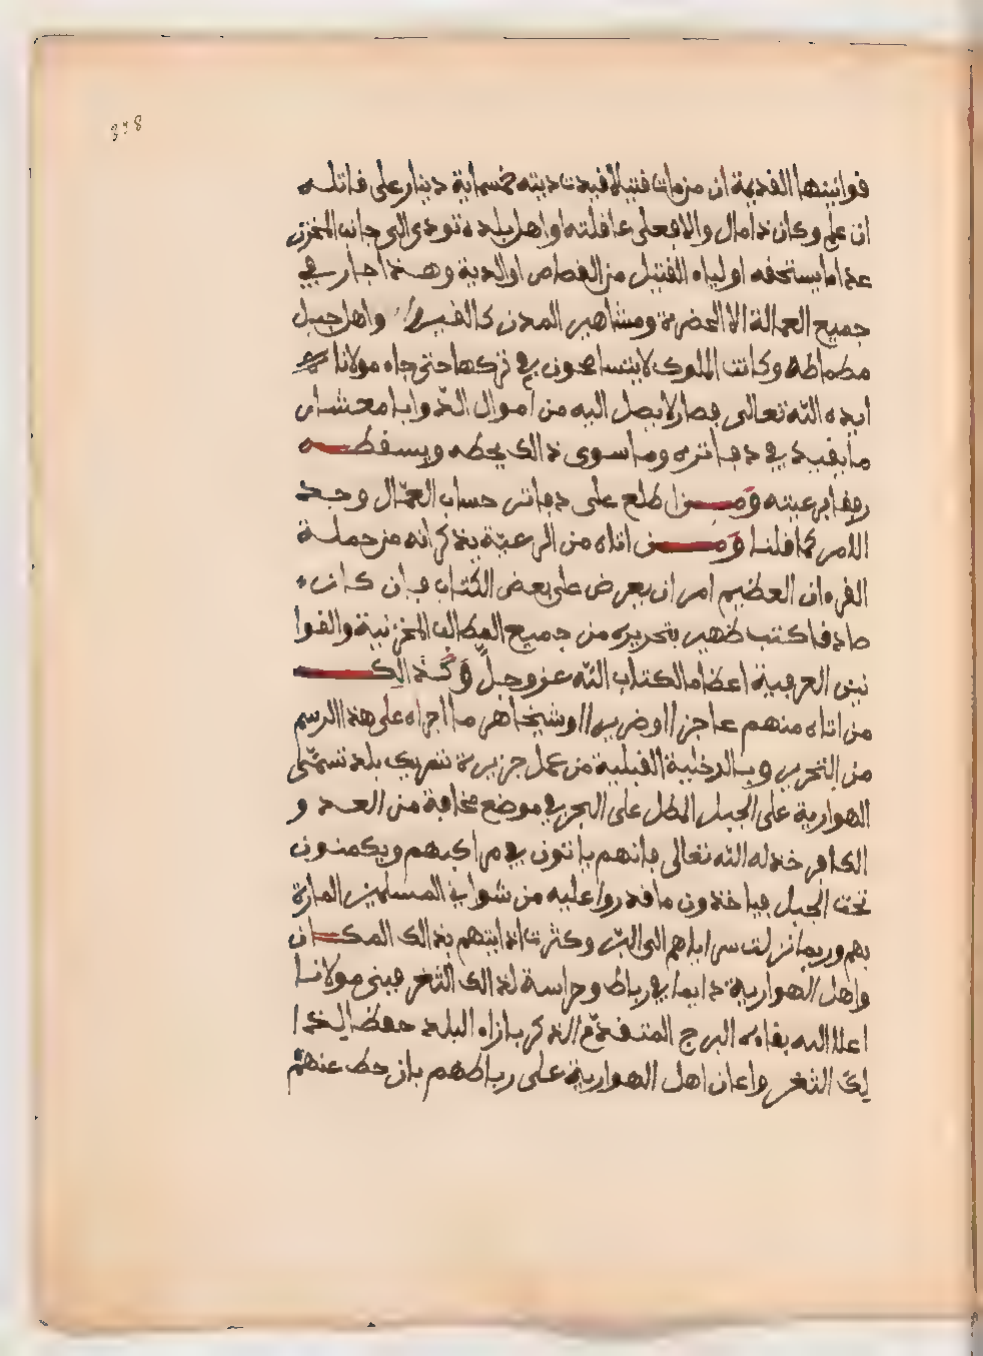 398
قوانينها القديمة ان من مات قتيلا قيدت ديته خمسماية دينار على قاتله
ان علم وكان ذا مال والا فعلى عاقلته او اهل بلده تودى الى جانب المخزن
عدا ما يستحقه اولياء القتيل من القصاص او الدية وهذا جار في
جميع العمالة الا الحضرة ومشاهير المدن كالقيروان واهل جبل
مطماطة وكانت الملوك لا يتسامحون في تركها حتى جاء مولانا
ايده الله تعالى فصار لا يصل اليه من اموال الدوايا معشار
ما يقيد في دفاتره وما سوى ذالك يحطه ويسقطه
رفقا برعيته ومن اطلع على دفاتر حساب العمّال وجد
الامر كما قلنا ومن اتاه من الرعيّة يذكر انه من حملة
القرءان العظيم امر ان يعرض على بعض الكتاب فان كان
صادقا كتب ظهير بتحريره من جميع المطالب المخزنية والقوا
نين العرفية اعظاما لكتاب الله عز وجل وكذالك
من اتاه منهم عاجزا او ضريرا او شيخا هرما اجراه على هذا الرسم
من التحرير وبالدخلية القبلية من عمل جزيرة شريك بلد تسمّى
الهوارية على الجبل المطل على البحر في موضع مخافة من العدو
الكافر خذله الله تعالى فانهم ياتون في مراكبهم ويكمنون
تحت الجبل فياخذون ما قدروا عليه من شواني المسلمين المارة
بهم وربما نزلت سراياهم الى البرّ وكثرت اذايتهم بذالك المكان
واهل الهوارية دايما في رباط وحراسة لذالك الثغر فبنى مولانا
اعلا الله بقاءه البرج المتقدّم الذكر بازاء البلد حفظا لـذا
لك الثغر واعان اهل الهوارية على رباطهم بان حط عنهم